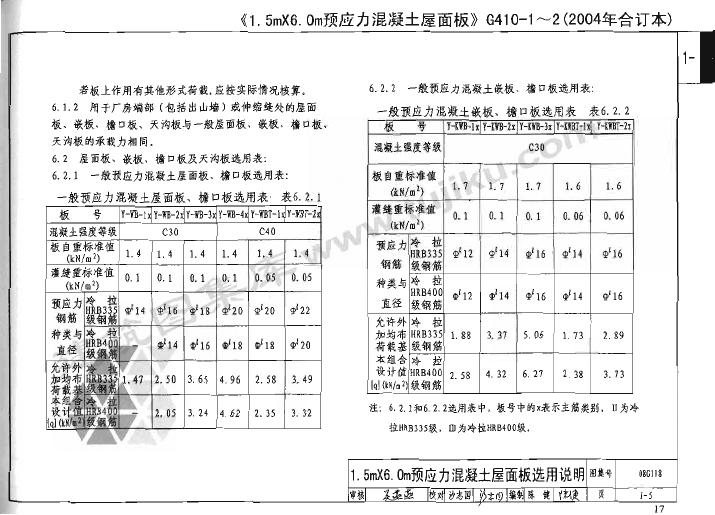 《1.5mX6.0m预应力混凝土屋面板》G410-1～2(2004年合订本)
1-
若板上作用有其他形式荷载,应按实际情况核算。
6.1.2 用于厂房端部（包括出山墙）或伸缩缝处的屋面
板、嵌板、檐口板、天沟板与一般屋面板、嵌板、檐口板、
天沟板的承载力相同。
6.2 屋面板、嵌板、檐口板及天沟板选用表:
6.2.1 一般预应力混凝土屋面板、檐口板选用表:
一般预应力混凝土屋面板、檐口板选用表 表6.2.1
板 号 Y-WB-1x Y-WB-2x Y-WB-3x Y-WB-4x Y-WBT-1x Y-WBT-2x
混凝土强度等级 C30 C40
板自重标准值(kN/m²) 1.4 1.4 1.4 1.4 1.4 1.4
灌缝重标准值(kN/m²) 0.1 0.1 0.1 0.1 0.05 0.05
预应力钢筋种类与直径
冷拉HRB335级钢筋 Φˡ14 Φˡ16 Φˡ18 Φˡ20 Φˡ20 Φˡ22
冷拉HRB400级钢筋 — Φˡ14 Φˡ16 Φˡ18 Φˡ18 Φˡ20
允许外加均布荷载基本组合设计值[q](kN/m²)
冷拉HRB335级钢筋 1.47 2.50 3.65 4.96 2.58 3.49
冷拉HRB400级钢筋 — 2.05 3.24 4.62 2.35 3.32
6.2.2 一般预应力混凝土嵌板、檐口板选用表:
一般预应力混凝土嵌板、檐口板选用表 表6.2.2
板 号 Y-KWB-1x Y-KWB-2x Y-KWB-3x Y-KWBT-1x Y-KWBT-2x
混凝土强度等级 C30
板自重标准值(kN/m²) 1.7 1.7 1.7 1.6 1.6
灌缝重标准值(kN/m²) 0.1 0.1 0.1 0.06 0.06
预应力钢筋种类与直径
冷拉HRB335级钢筋 Φˡ12 Φˡ14 Φˡ16 Φˡ14 Φˡ16
冷拉HRB400级钢筋 Φˡ12 Φˡ14 Φˡ16 Φˡ14 Φˡ16
允许外加均布荷载基本组合设计值[q](kN/m²)
冷拉HRB335级钢筋 1.88 3.37 5.06 1.73 2.89
冷拉HRB400级钢筋 2.58 4.32 6.27 2.38 3.73
注: 6.2.1和6.2.2选用表中, 板号中的x表示主筋类别, Ⅱ为冷
拉HRB335级, Ⅲ为冷拉HRB400级.
1.5mX6.0m预应力混凝土屋面板选用说明 图集号 08G118
审核 校对 沙志国 编制 陈健 页 1-5
17